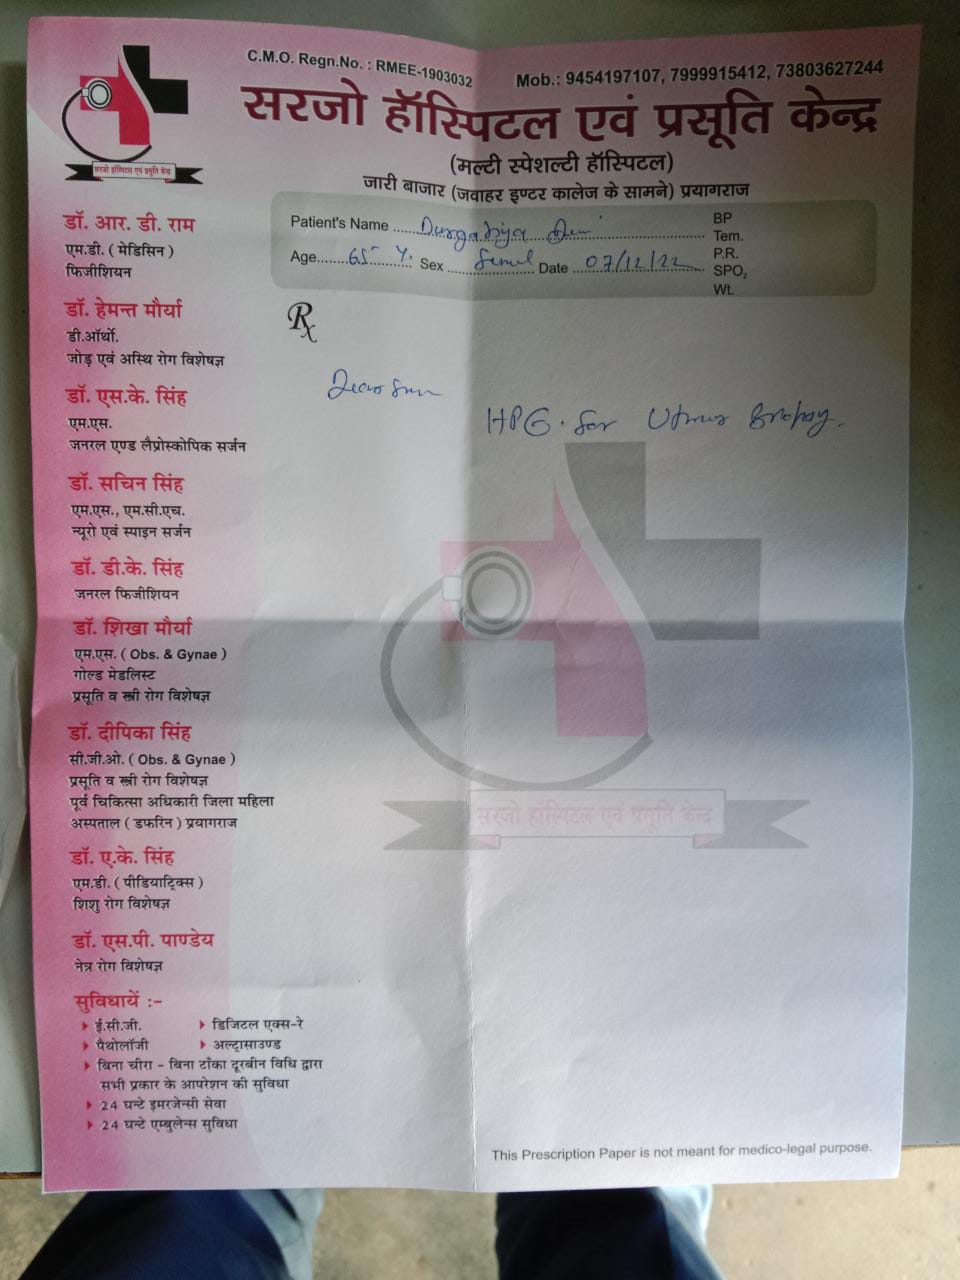 C.M.O. Regn.No. : RMEE-1903032
Mob.: 9454197107, 7999915412, 73803627244
सरजो हॉस्पिटल एवं प्रसूति केन्द्र
(मल्टी स्पेशल्टी हॉस्पिटल)
जारी बाजार (जवाहर इण्टर कालेज के सामने) प्रयागराज
सरजो हॉस्पिटल एवं प्रसूति केन्द्र
Patient's Name
Age 65 Y. Sex Date 07/12/22
BP
Tem.
P.R.
SPO2
Wt.
Rx
Dear
HPE. for
डॉ. आर. डी. राम
एम.डी. ( मेडिसिन )
फिजीशियन
डॉ. हेमन्त मौर्या
डी.ऑर्थो.
जोड़ एवं अस्थि रोग विशेषज्ञ
डॉ. एस.के. सिंह
एम.एस.
जनरल एण्ड लैप्रोस्कोपिक सर्जन
डॉ. सचिन सिंह
एम.एस., एम.सी.एच.
न्यूरो एवं स्पाइन सर्जन
डॉ. डी.के. सिंह
जनरल फिजीशियन
डॉ. शिखा मौर्या
एम.एस. ( Obs. & Gynae )
गोल्ड मेडलिस्ट
प्रसूति व स्त्री रोग विशेषज्ञ
डॉ. दीपिका सिंह
सी.जी.ओ. ( Obs. & Gynae )
प्रसूति व स्त्री रोग विशेषज्ञ
पूर्व चिकित्सा अधिकारी जिला महिला
अस्पताल ( डफरिन ) प्रयागराज
डॉ. ए.के. सिंह
एम.डी. ( पीडियाट्रिक्स )
शिशु रोग विशेषज्ञ
डॉ. एस.पी. पाण्डेय
नेत्र रोग विशेषज्ञ
सुविधायें :-
ई.सी.जी.
डिजिटल एक्स-रे
पैथोलॉजी
अल्ट्रासाउण्ड
बिना चीरा - बिना टाँका दूरबीन विधि द्वारा
सभी प्रकार के आपरेशन की सुविधा
24 घन्टे इमरजेन्सी सेवा
24 घन्टे एम्बुलेन्स सुविधा
सरजो हॉस्पिटल एवं प्रसूति केन्द्र
This Prescription Paper is not meant for medico-legal purpose.